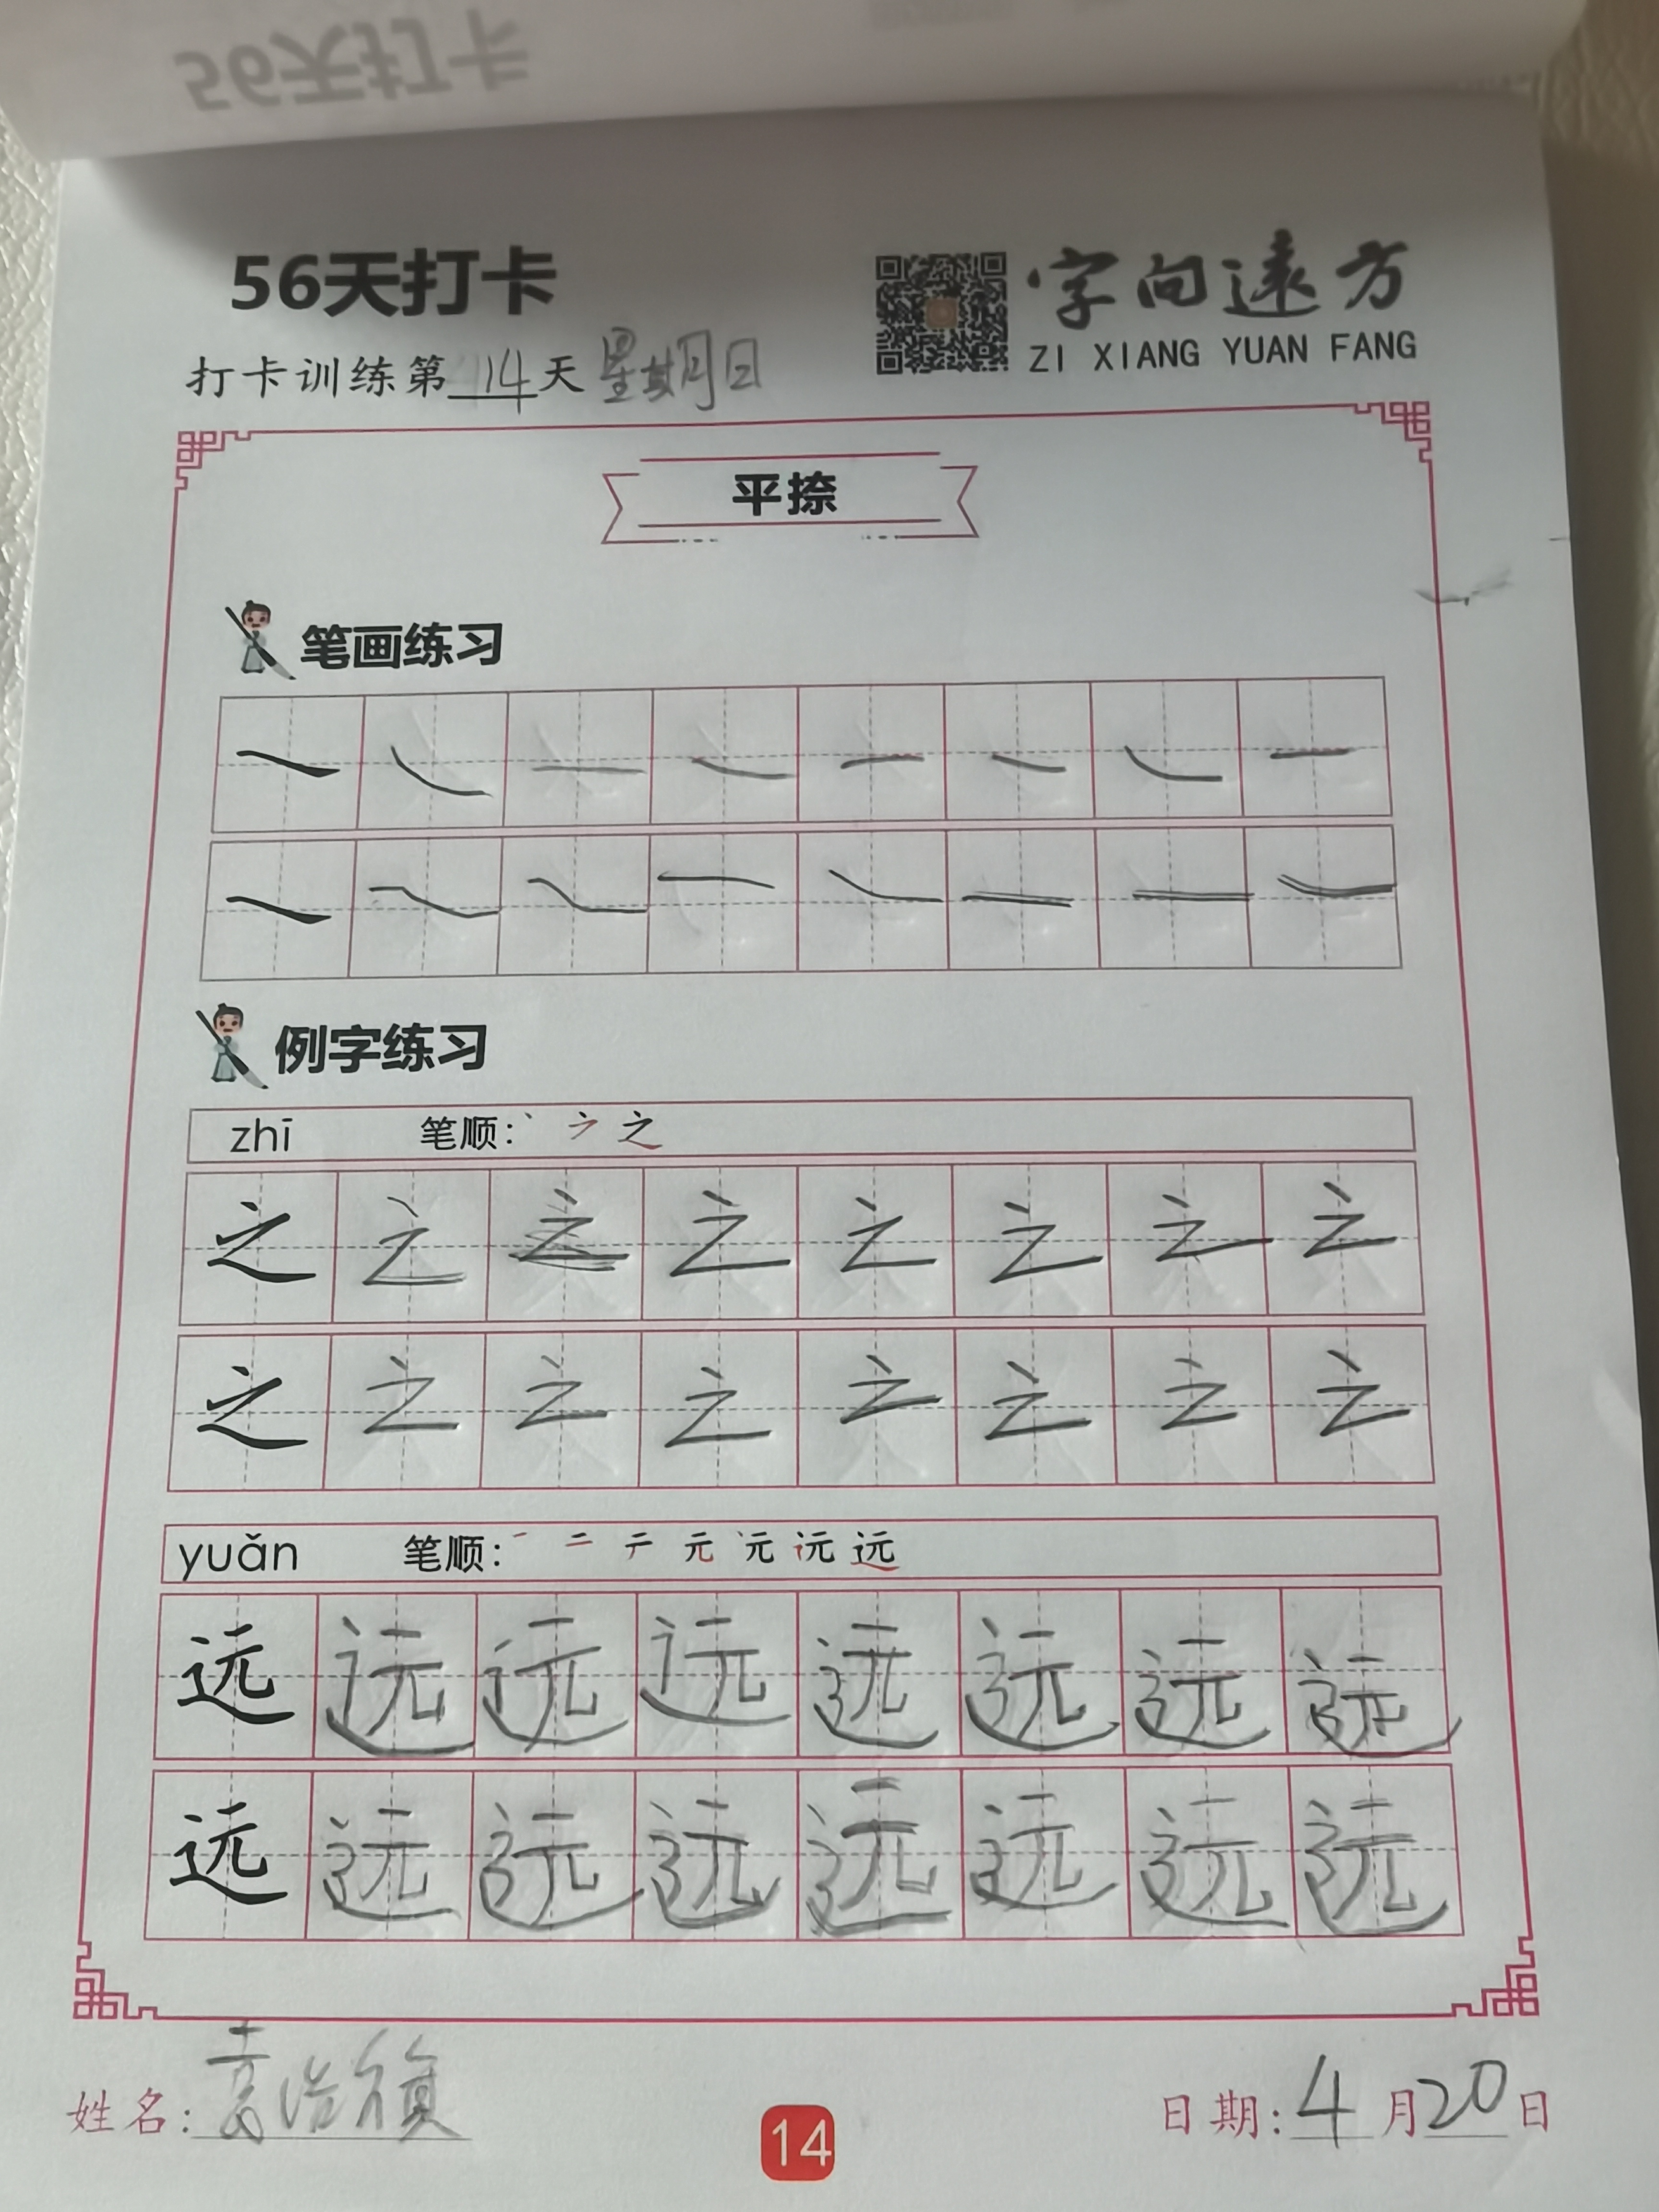 56天打卡
56天打卡
字向遠方
ZI XIANG YUAN FANG
打卡训练第14天 星期日
平捺
笔画练习
例字练习
zhī 笔顺: 丶 ㇇ 之
之 之 之 之 之 之 之 之
之 之 之 之 之 之 之 之
yuǎn 笔顺: 一 二 テ 元 元 远 远
远 远 远 远 远 远 远 远
远 远 远 远 远 远 远 远
姓名: 袁浩
日期: 4月20日
14